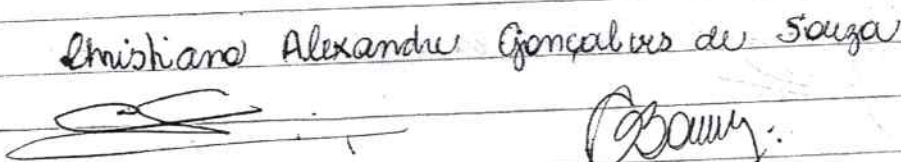 Christiano Alexandre Gonçalves de Souza